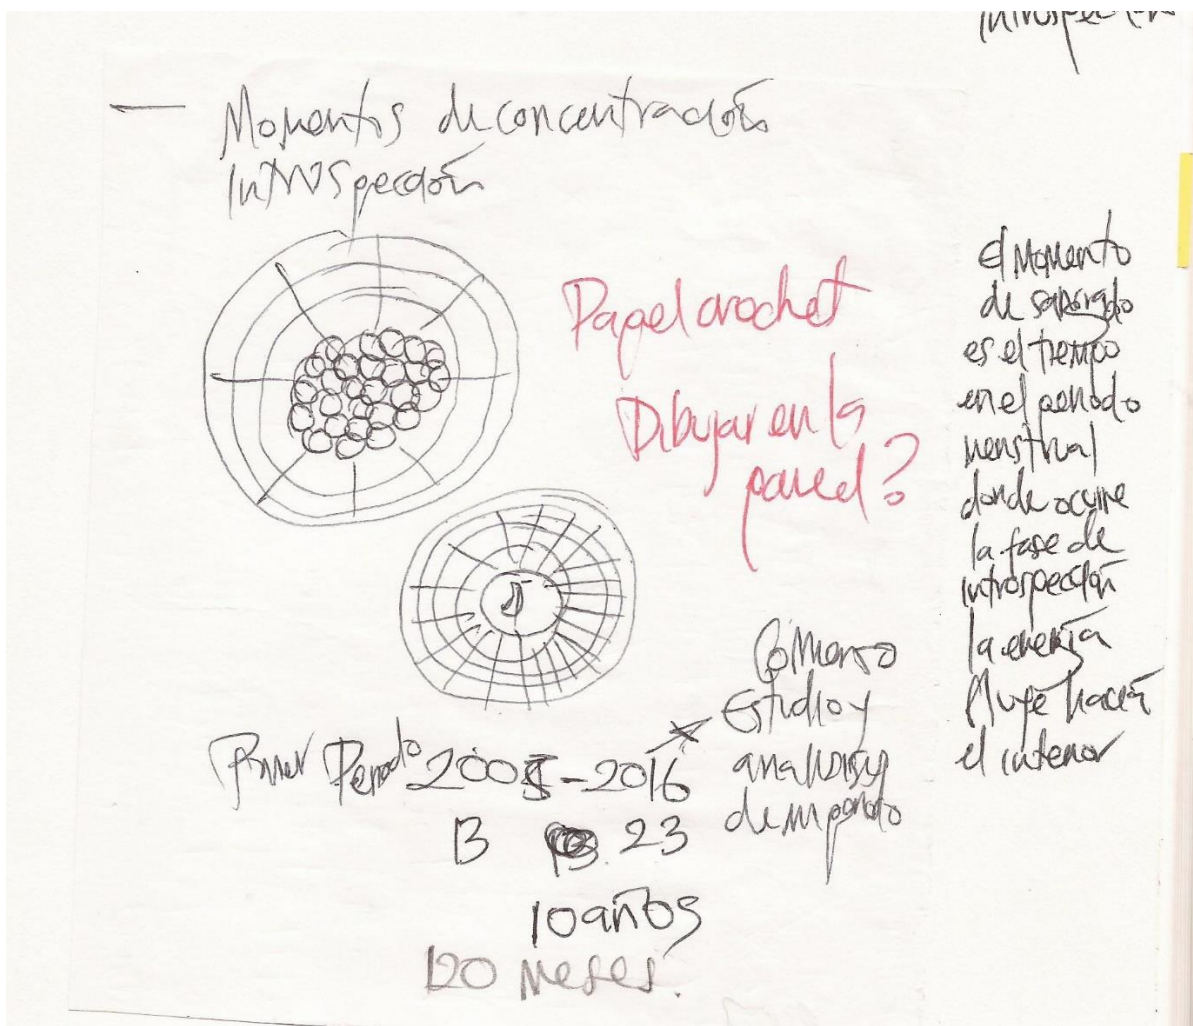 introspección
— Momentos de concentración
Introspección
Papel crochet
Dibujar en la
pared?
El Momento
de sangrado
es el tiempo
en el periodo
menstrual
donde ocurre
la fase de
introspección
la energía
fluye hacia
el interior
Comienzo
Estudio y
analisis
de mi periodo
Primer Periodo 2005-2016
13 23
10 años
120 Meses.